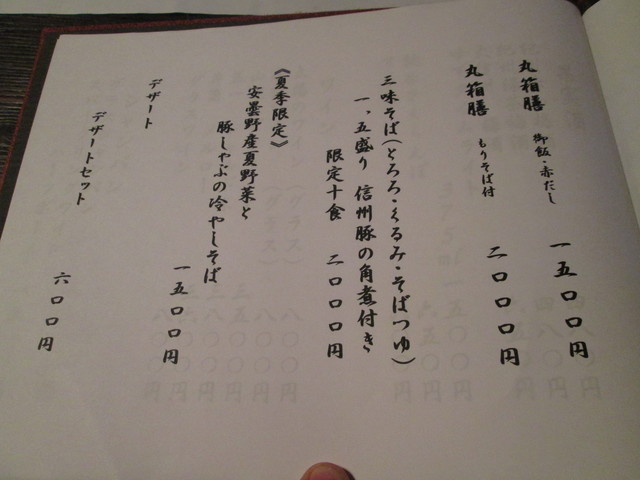 丸箱膳 御飯・赤だし 一五〇〇円
丸箱膳 もりそば付 二〇〇〇円
三味そば(とろろ・くるみ・そばつゆ)
一、五盛り 信州豚の角煮付き
限定十食 二〇〇〇円
《夏季限定》
安曇野産夏野菜と
豚しゃぶの冷やしそば
一五〇〇円
デザート
デザートセット
六〇〇円